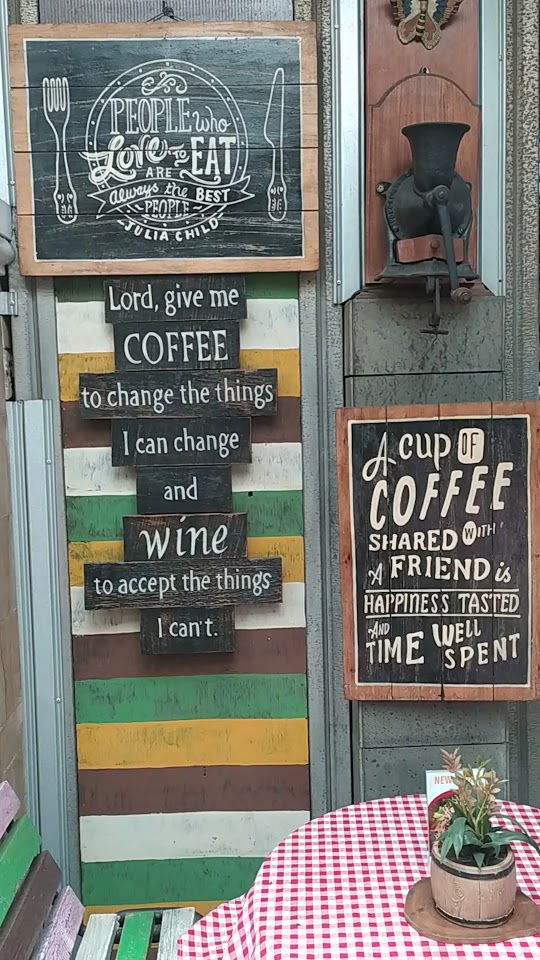 PEOPLE who
Love to EAT
ARE
always the BEST
PEOPLE
JULIA CHILD
Lord, give me
COFFEE
to change the things
I can change
and
wine
to accept the things
I can't.
A cup OF
COFFEE
SHARED WITH
A FRIEND is
HAPPINESS TASTED
AND
TIME WELL
SPENT
NEW